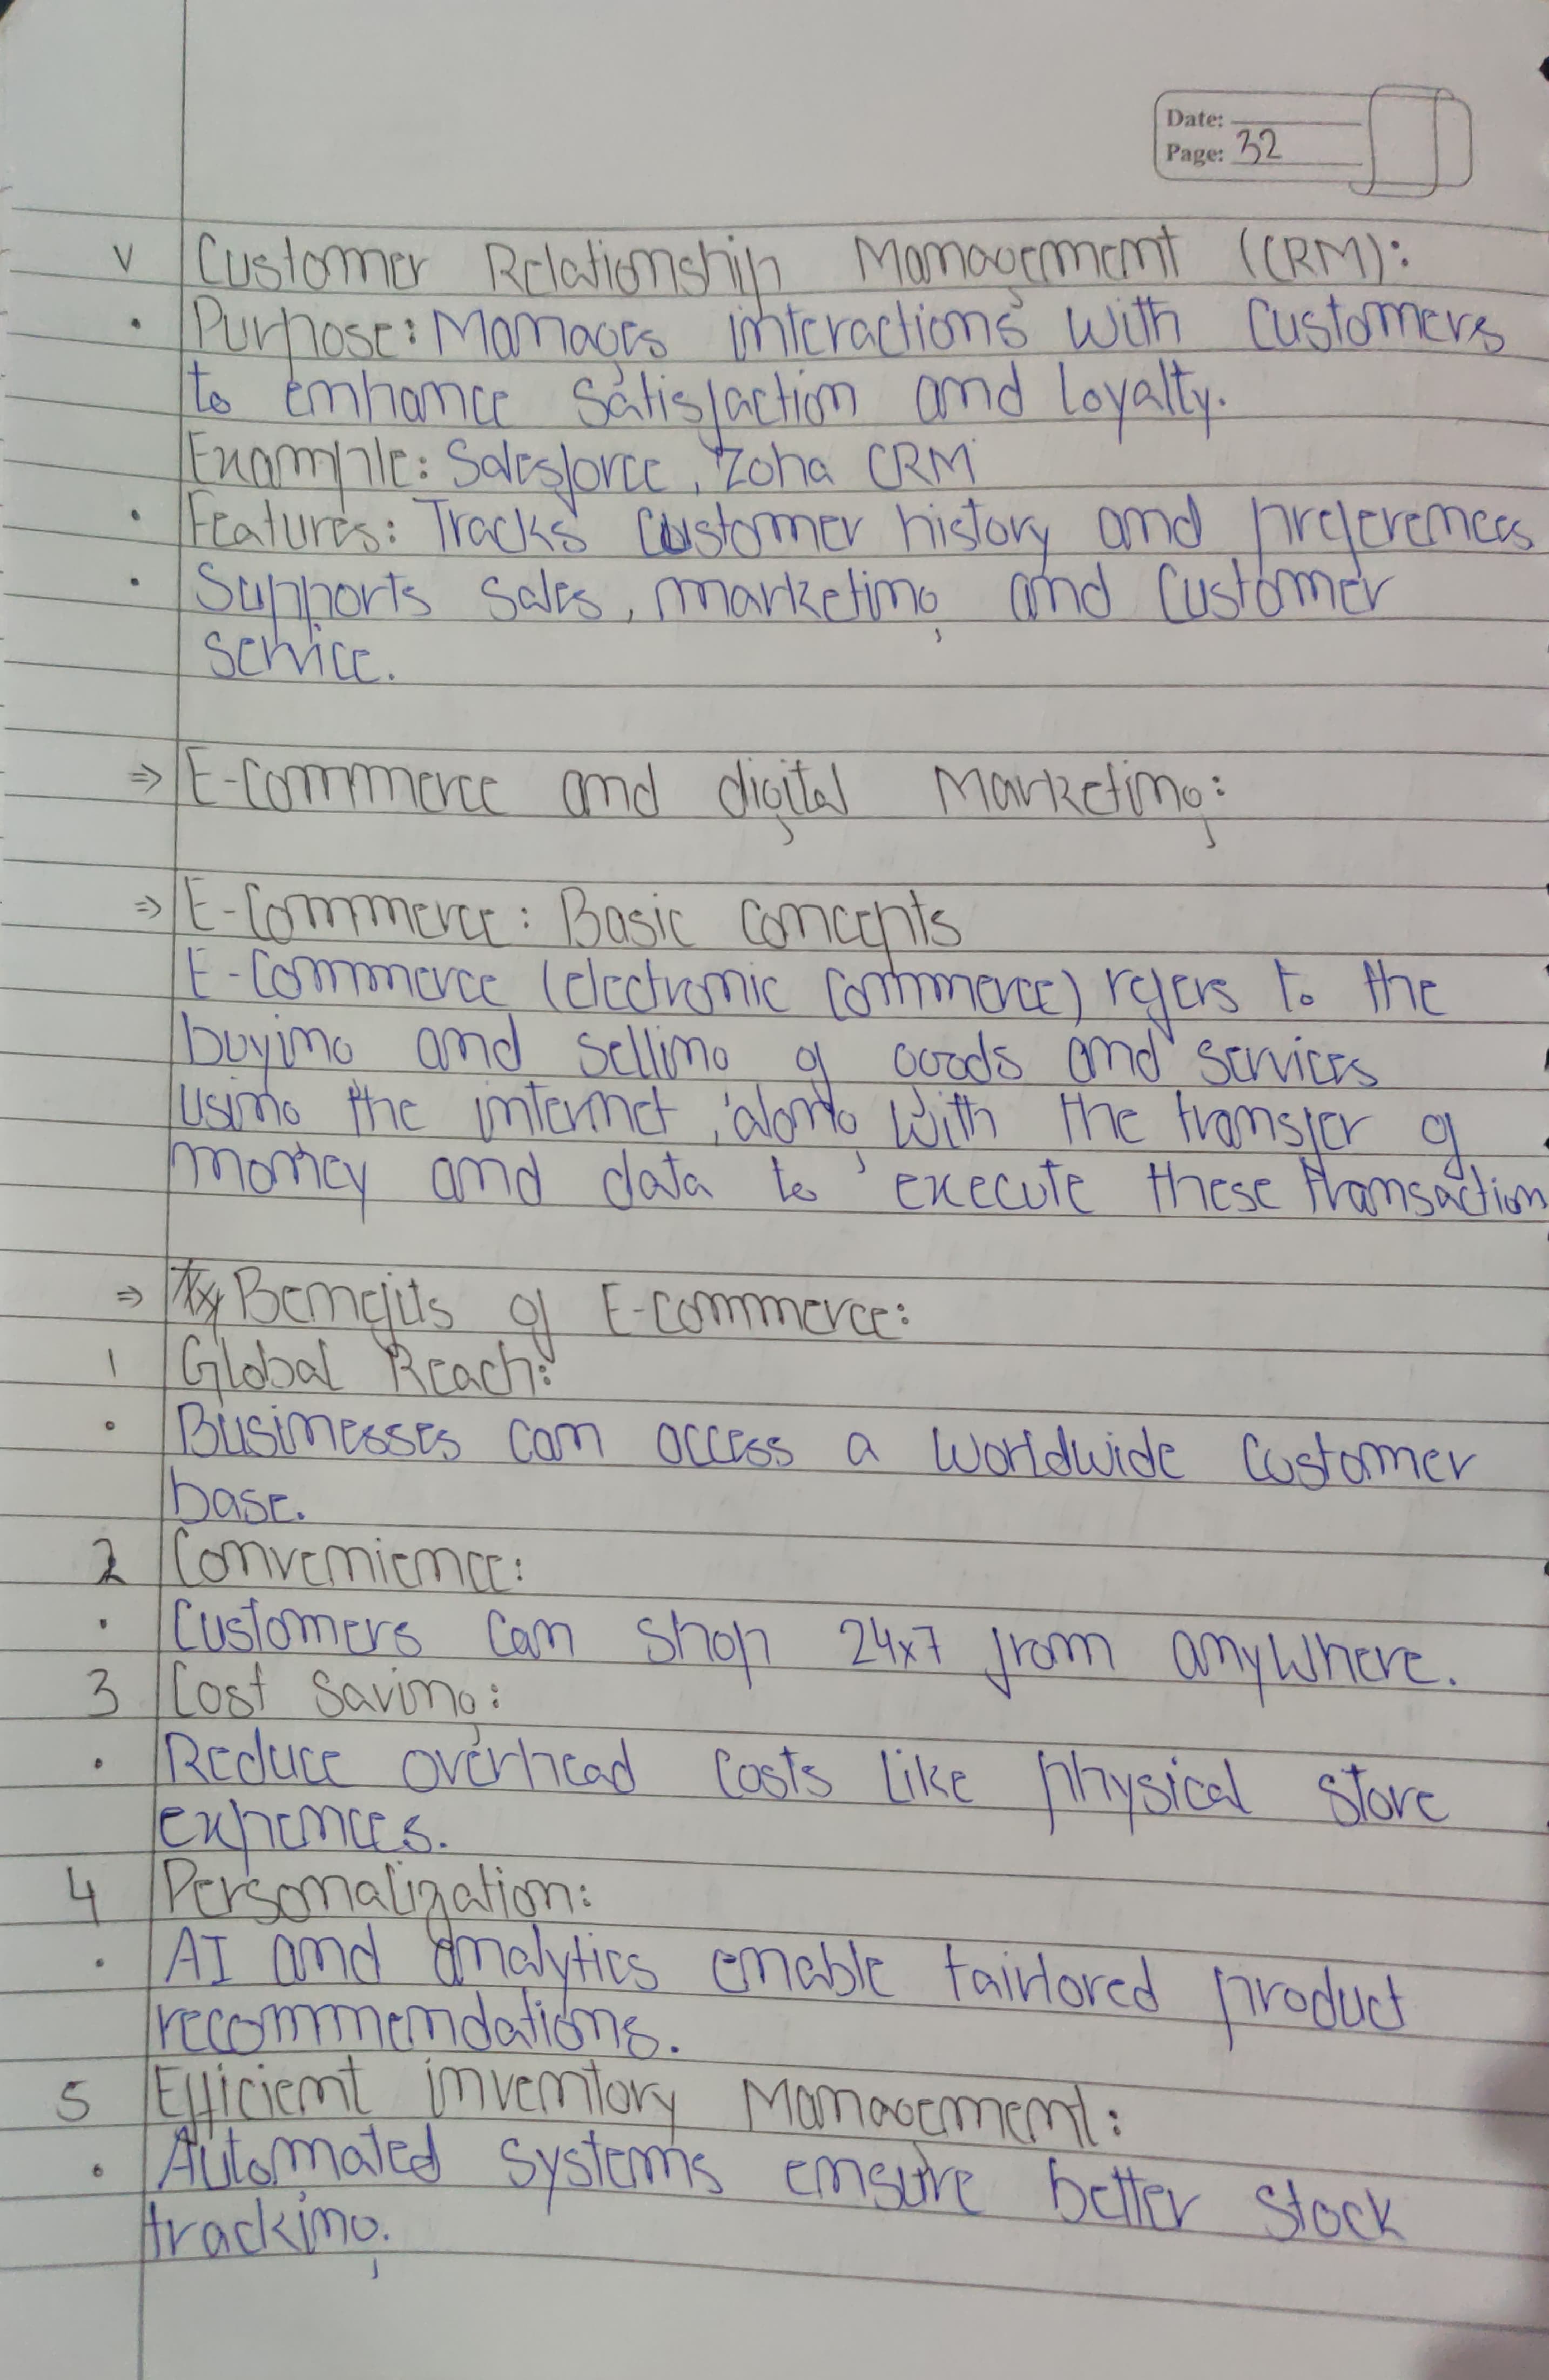 Date:
Page: 32
v Customer Relationship Management (CRM):
• Purpose: Manages interactions with customers
to enhance satisfaction and loyalty.
Example: Salesforce, Zoha CRM
• Features: Tracks customer history and preferences
• Supports sales, marketing and customer
service.
⇒ E-Commerce and digital Marketing:
⇒ E-Commerce: Basic concepts
E-Commerce (electronic commerce) refers to the
buying and selling of goods and services
using the internet, along with the transfer of
money and data to execute these transaction
⇒ Benefits of E-commerce:
1 Global Reach:
• Businesses can access a worldwide customer
base.
2 Convenience:
• Customers can shop 24x7 from anywhere.
3 Cost Saving:
• Reduce overhead costs like physical store
expences.
4 Personalization:
• AI and analytics enable tairlored product
recommendations.
5 Efficient inventory Management:
• Automated systems ensure better stock
tracking.